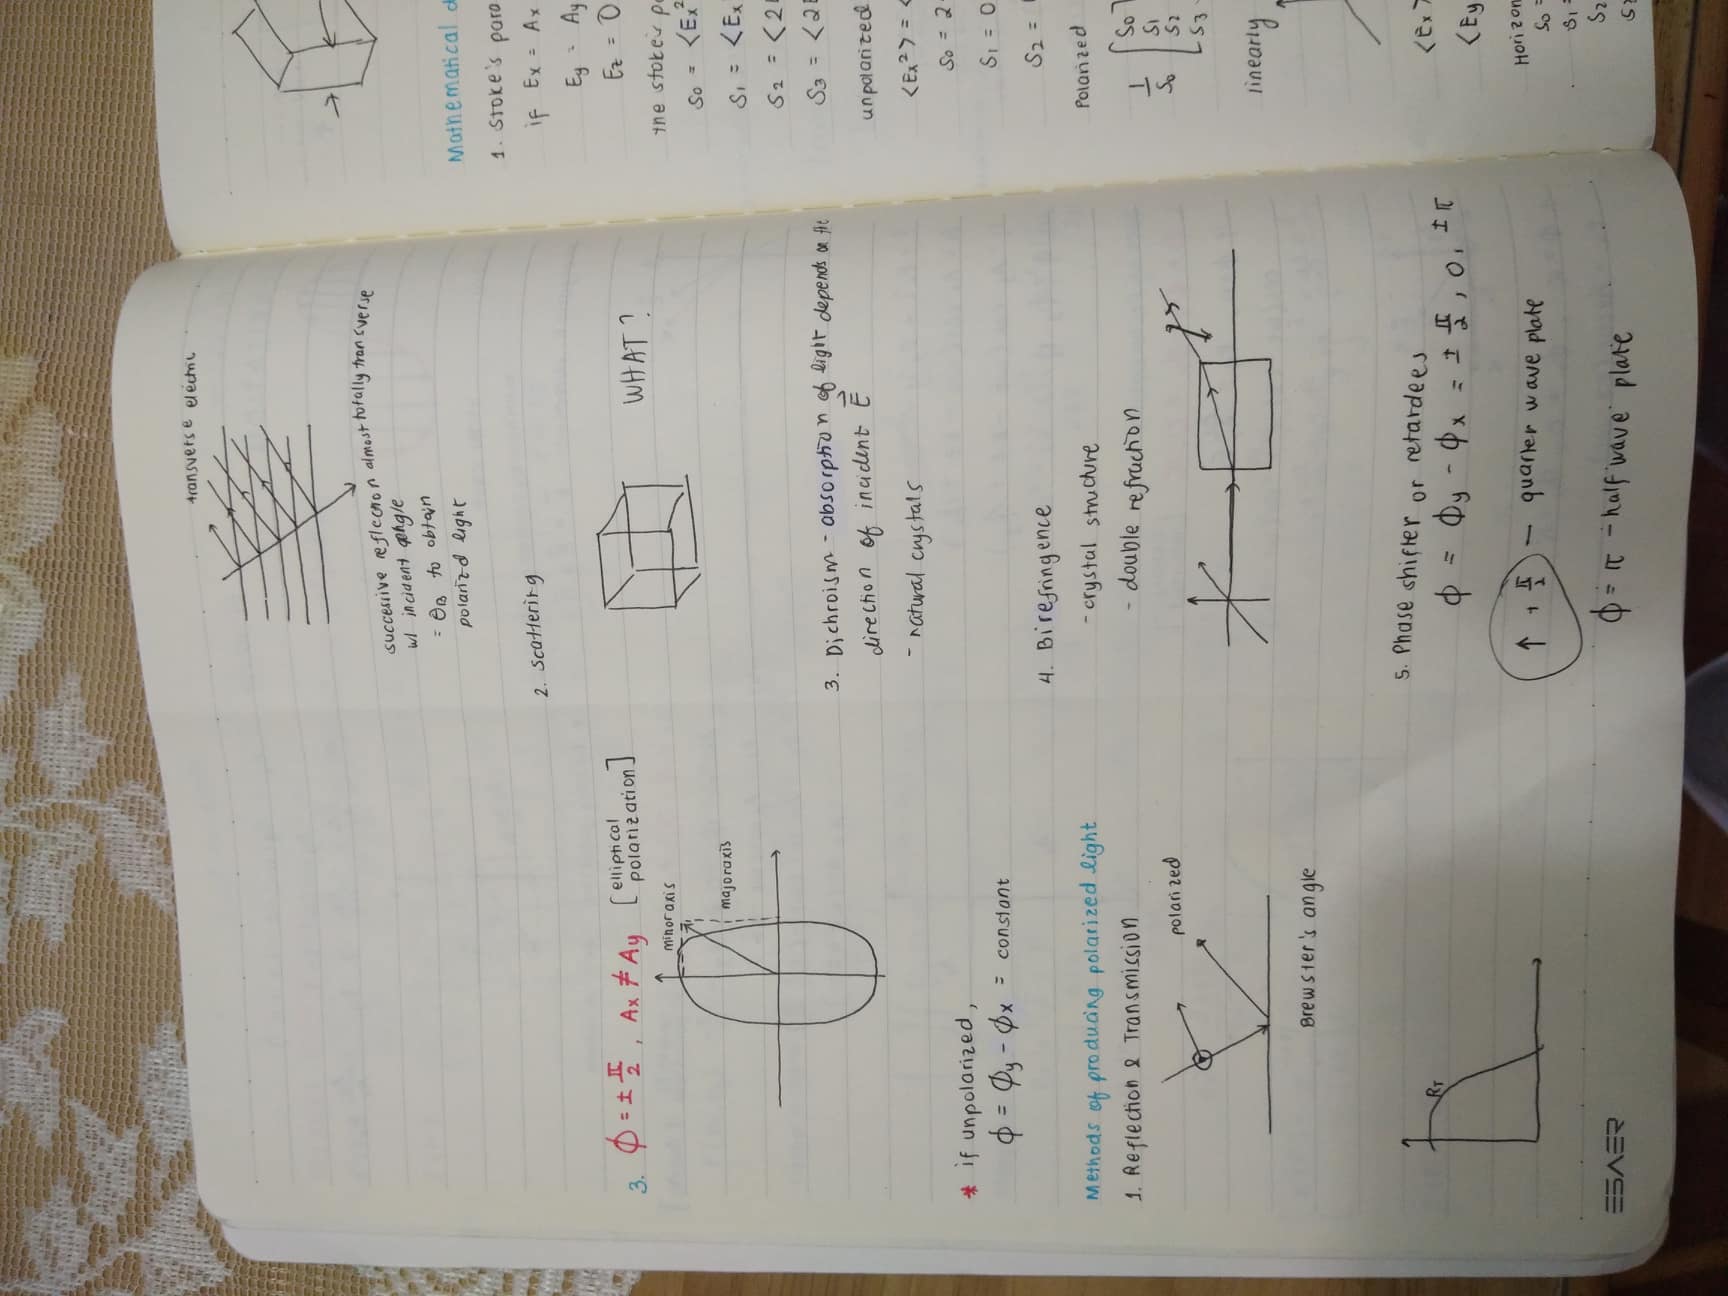 3. ϕ = ± π/2 , Ax ≠ Ay [elliptical
polarization]
minor axis
major axis
* if unpolarized,
ϕ = ϕy - ϕx = constant
Methods of producing polarized light
1. Reflection & Transmission
polarized
Brewster's angle
transverse electric
successive reflection almost totally transverse
w/ incident angle
= θB to obtain
polarized light
2. scattering
WHAT?
3. Dichroism - absorption of light depends on the
direction of incident E⃗
- natural crystals
4. Birefringence
- crystal structure
- double refraction
5. Phase shifter or retardees
ϕ = ϕy - ϕx = ± π/2 , 0, ± π
↑ + π/2 — quarter wave plate
ϕ = π - half wave plate
Mathematical
1. stoke's para
if Ex = Ax
Ey = Ay
Ez = 0
the stokes pa
S0 = <Ex²
S1 = <Ex
S2 = <2
S3 = <2
unpolarized
<Ex²> = <
S0 = 2
S1 = 0
S2 =
Polarized
1/S0 [S0
S1
S2
S3
linearly
<Ex
<Ey
Horizon
S0 =
S1 =
S2